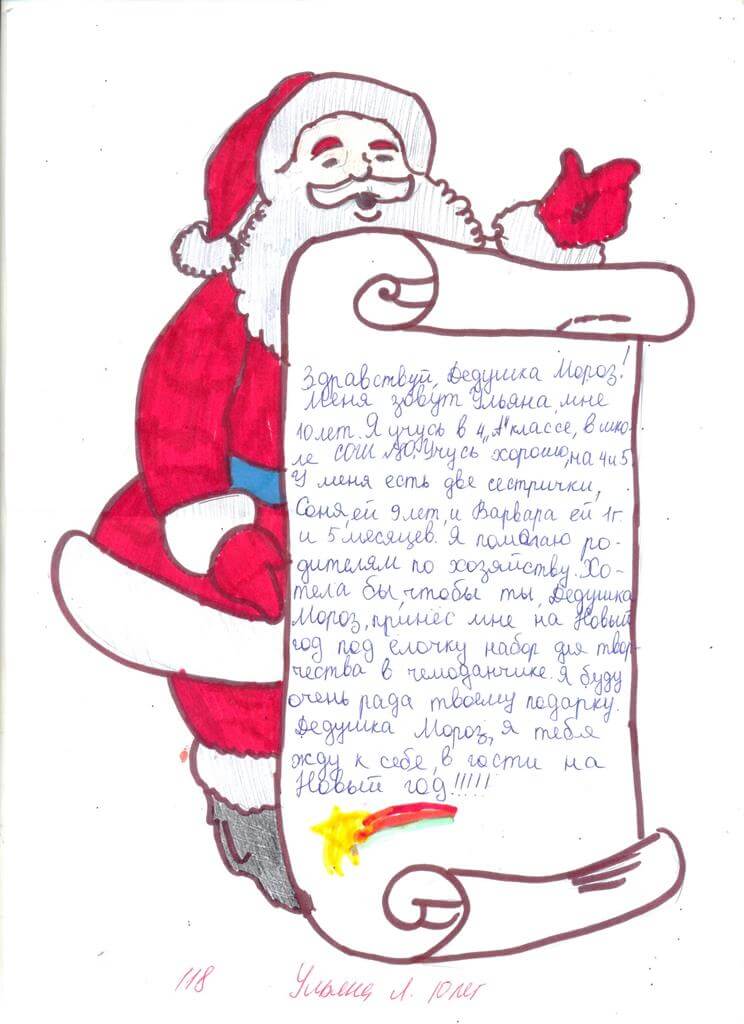 Здравствуй, Дедушка Мороз!
Меня зовут Ульяна, мне
10 лет. Я учусь в 4 „А" классе, в шко-
ле СОШ Учусь хорошо, на 4 и 5.
У меня есть две сестрички,
Соня, ей 9 лет, и Варвара ей 1 г.
и 5 месяцев. Я помогаю ро-
дителям по хозяйству. Хо-
тела бы, чтобы ты, Дедушка
Мороз, принёс мне на Новый
год под ёлочку набор для твор-
чества в чемоданчике. Я буду
очень рада твоему подарку.
Дедушка Мороз, я тебя
жду к себе, в гости на
Новый год!!!!!
118 Ульяна Л. 10 лет